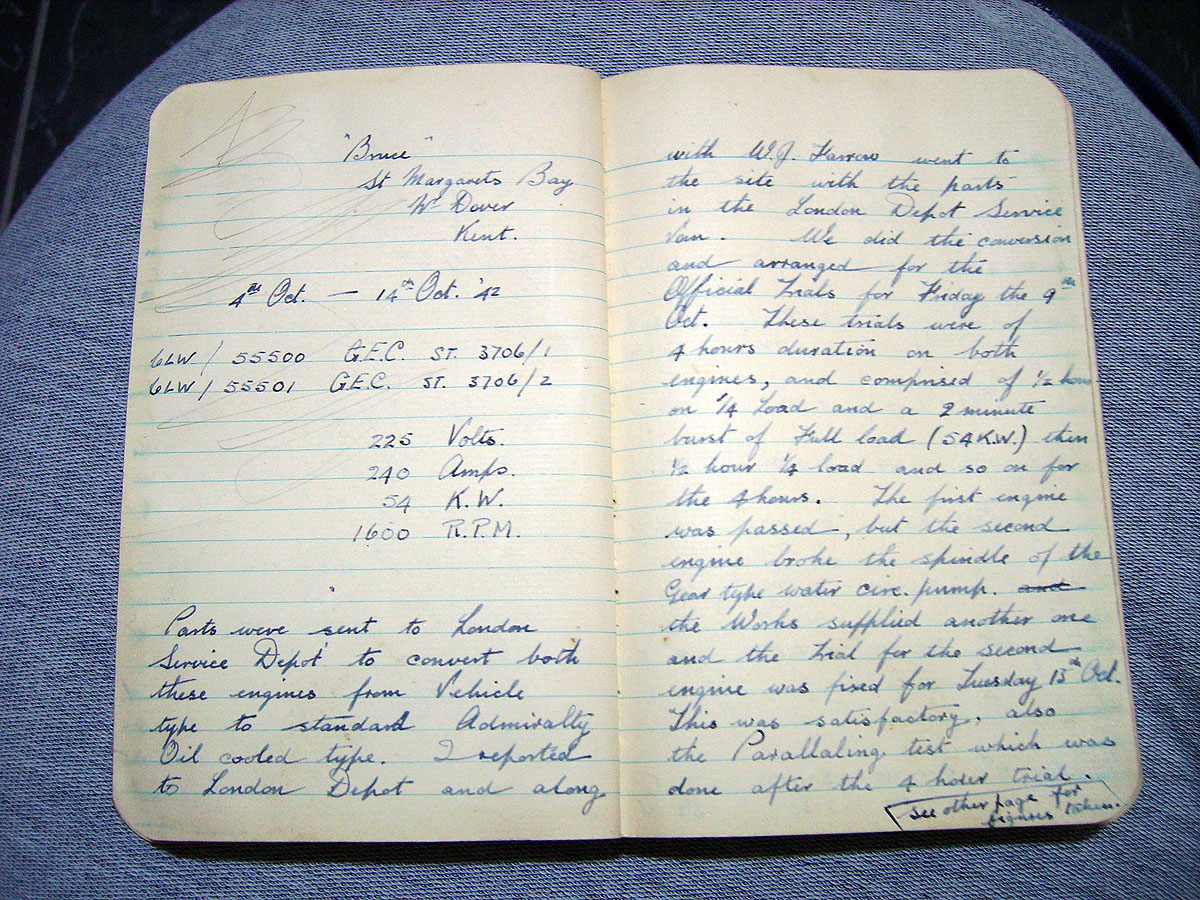 "Bruce"
St Margarets Bay
Nr Dover
Kent.
4th Oct. — 14th Oct. '42
6LW / 55500 G.E.C. ST. 3706/1
6LW / 55501 G.E.C. ST. 3706/2
225 Volts.
240 Amps.
54 K.W.
1600 R.P.M.
Parts were sent to London
Service Depot to convert both
these engines from Vehicle
type to standard Admiralty
Oil cooled type. I reported
to London Depot and along
with W.J. Farrow went to
the site with the parts
in the London Depot Service
Van. We did the conversion
and arranged for the
Official Trials for Friday the 9th
Oct. These trials were of
4 hours duration on both
engines, and comprised of ½ hour
on ¼ Load and a 2 minute
burst of Full load (54 K.W.) then
½ hour ¼ load and so on for
the 4 hours. The first engine
was passed, but the second
engine broke the spindle of the
Gear type water circ. pump. and
the Works supplied another one
and the Trial for the second
engine was fixed for Tuesday 13th Oct.
This was satisfactory, also
the Parallaling test which was
done after the 4 hour trial.
see other page for
figures taken.